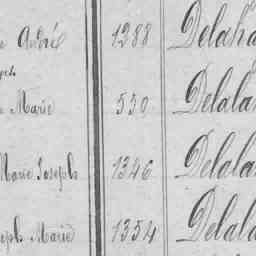 André 1288 Delaha
Marie 530 Delala
Marie Joseph 1346 Delala
Marie 1354 Delala